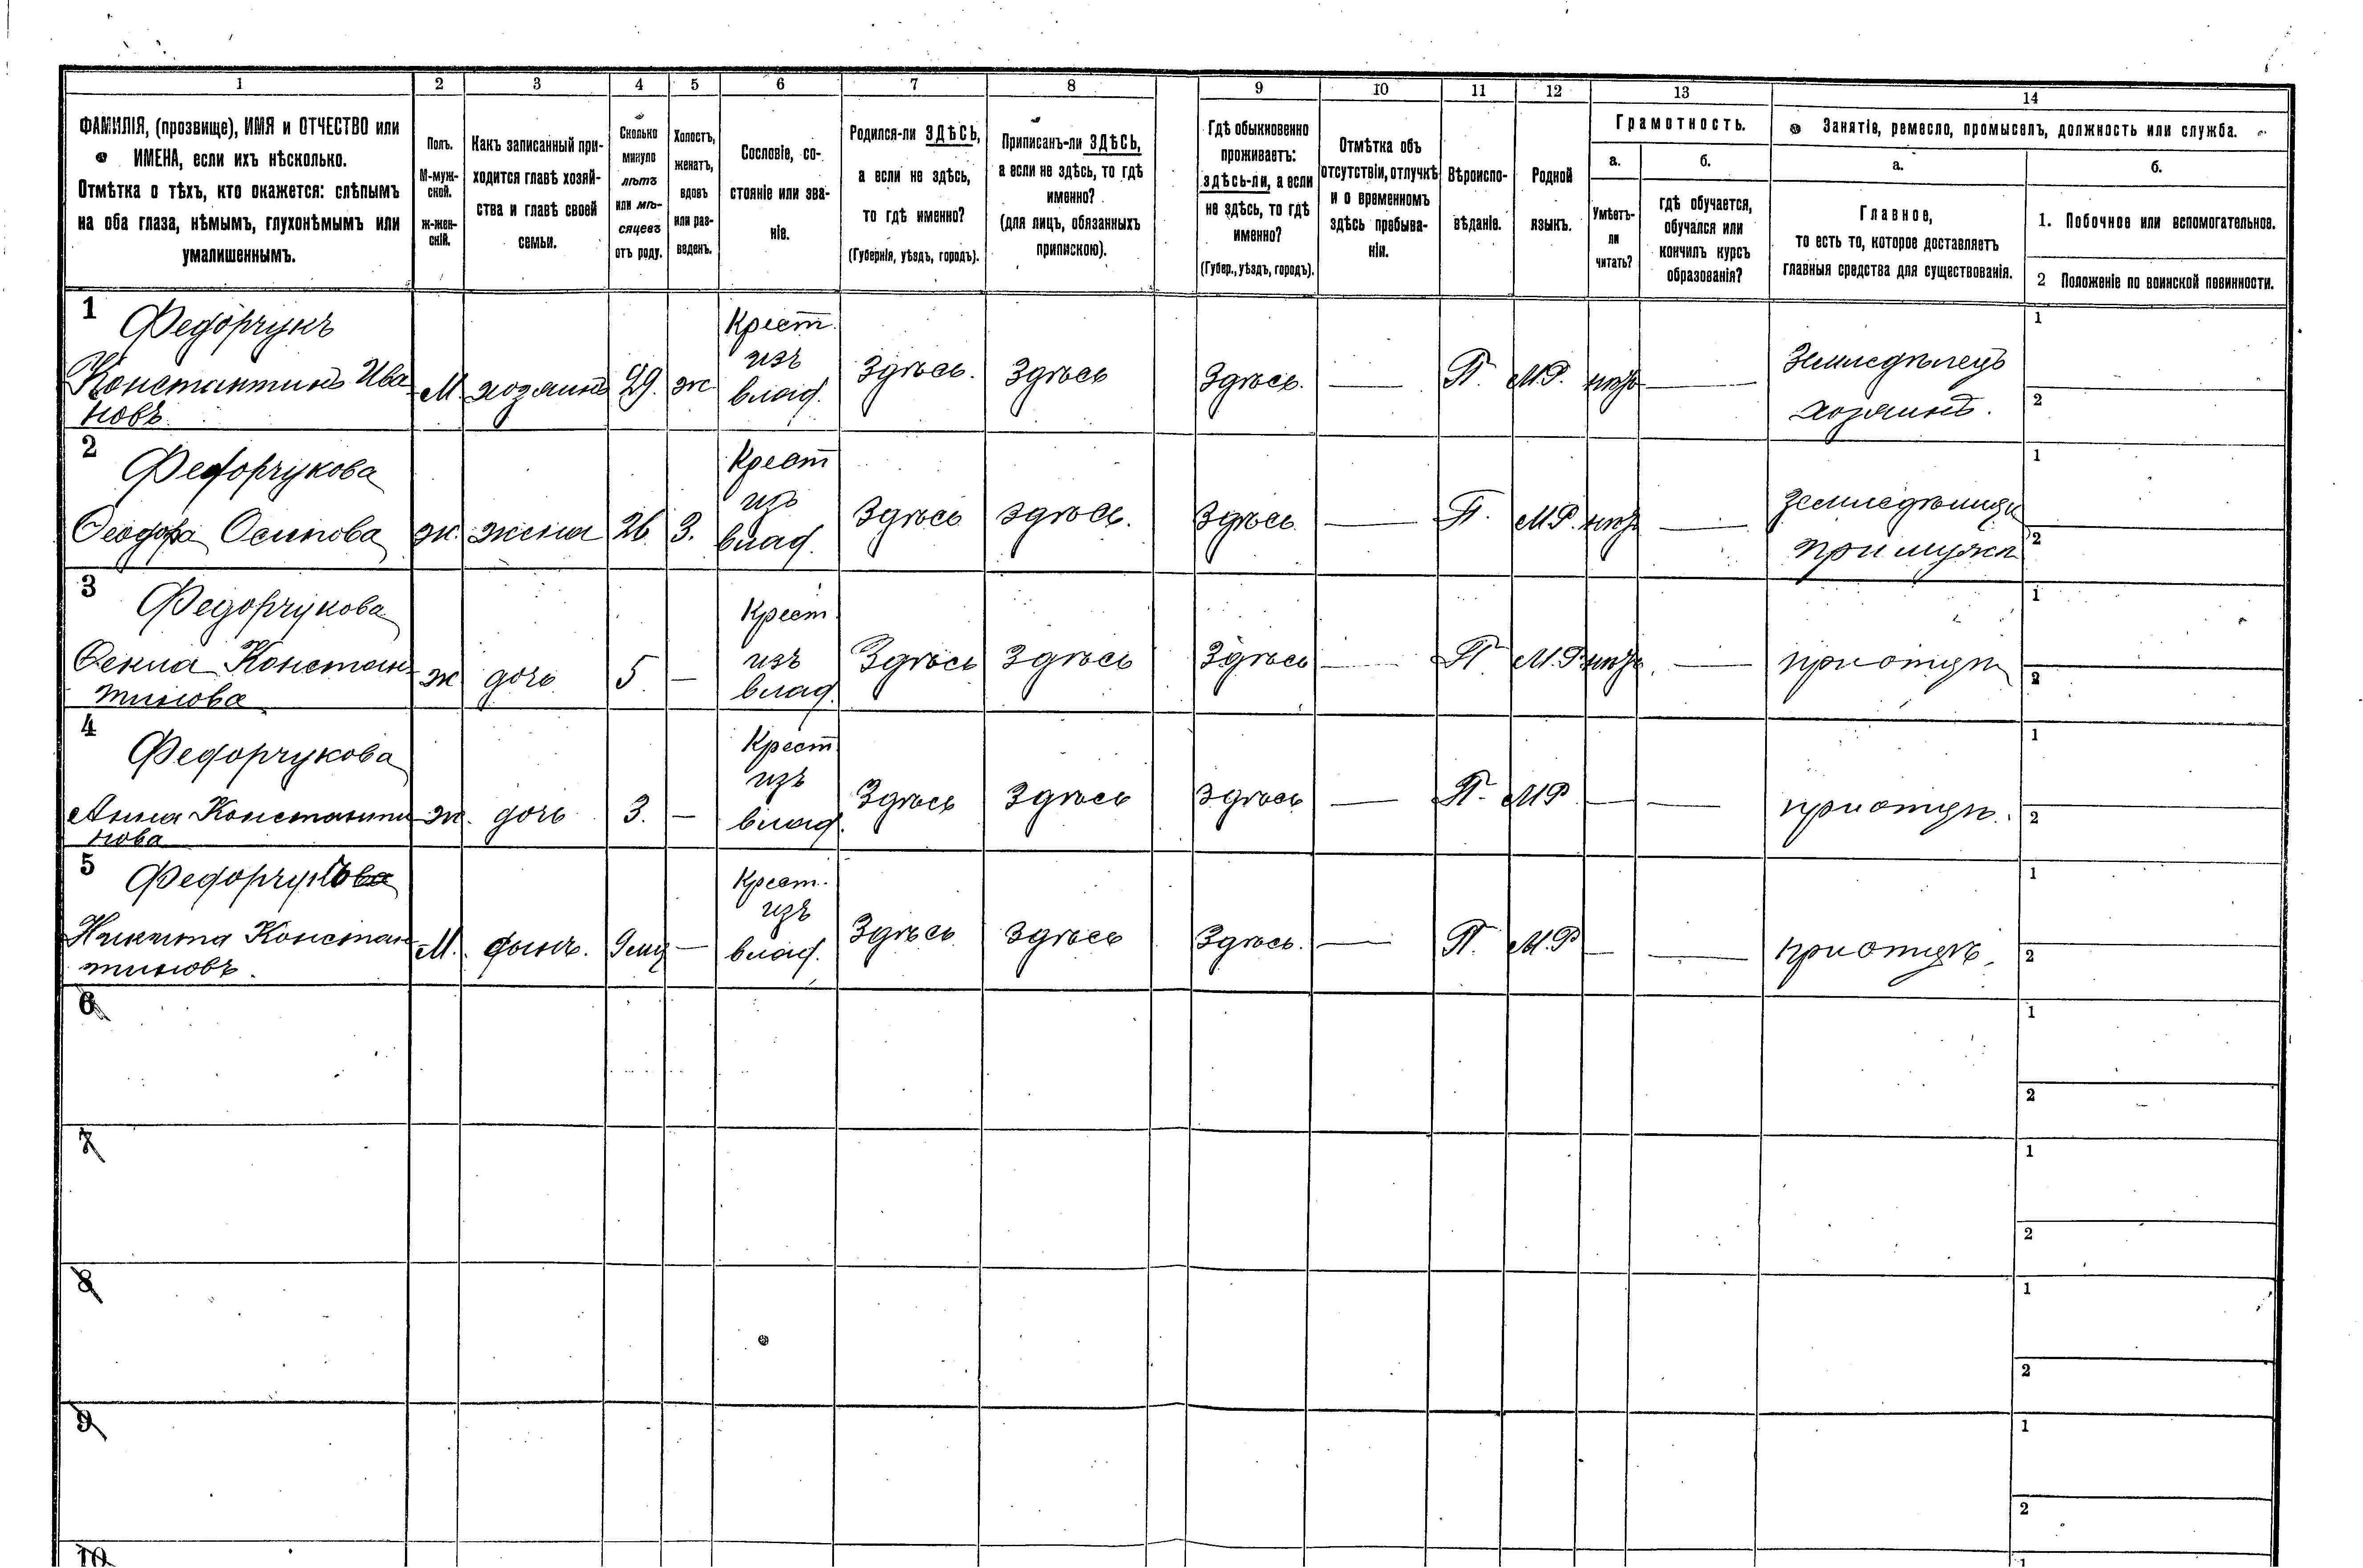 1 2 3 4 5 6 7 8 9 10 11 12 13 14
ФАМИЛІЯ, (прозвище), ИМЯ и ОТЧЕСТВО или
ИМЕНА, если ихъ нѣсколько.
Отмѣтка о тѣхъ, кто окажется: слѣпымъ
на оба глаза, нѣмымъ, глухонѣмымъ или
умалишеннымъ.
Полъ.
М-муж-
ской.
ж-жен-
скій.
Какъ записанный при-
ходится главѣ хозяй-
ства и главѣ своей
семьи.
Сколько
минуло
лѣтъ
или мѣ-
сяцевъ
отъ роду.
Холостъ,
женатъ,
вдовъ
или раз-
веденъ.
Сословіе, со-
стояніе или зва-
ніе.
Родился-ли ЗДѢСЬ,
а если не здѣсь,
то гдѣ именно?
(Губернія, уѣздъ, городъ).
Приписанъ-ли ЗДѢСЬ,
а если не здѣсь, то гдѣ
именно?
(для лицъ, обязанныхъ
припискою).
Гдѣ обыкновенно
проживаетъ:
здѣсь-ли, а если
не здѣсь, то гдѣ
именно?
(Губер., уѣздъ, городъ).
Отмѣтка объ
отсутствіи, отлучкѣ
и о временномъ
здѣсь пребыва-
ніи.
Вѣроиспо-
вѣданіе.
Родной
языкъ.
Грамотность.
а.
Умѣетъ-
ли
читать?
б.
гдѣ обучается,
обучался или
кончилъ курсъ
образованія?
Занятіе, ремесло, промыселъ, должность или служба.
а.
Главное,
то есть то, которое доставляетъ
главныя средства для существованія.
б.
1. Побочное или вспомогательное.
2 Положеніе по воинской повинности.
1 Федорчукъ
Константинъ Ива
новъ
М. хозяинъ 29. ж
Крест.
изъ
влад.
Здѣсь. Здѣсь Здѣсь. — П. М.Р. нѣтъ —
Земледѣлецъ
хозяинъ.
1
2
2 Федорчукова
Ѳеодора Осипова
ж. жена 26 З.
Крест
изъ
влад.
Здѣсь здѣсь. Здѣсь — П. М.Р. нѣтъ —
при мужѣ
1
2
3 Федорчукова
Ѳекла Констан-
тинова
ж дочь 5. —
Крест
изъ
влад.
Здѣсь Здѣсь Здѣсь — П М.Р. нѣтъ —
при отцѣ
1
2
4 Федорчукова
Анна Константи
нова
ж. дочь 3. —
Крест
изъ
влад.
Здѣсь Здѣсь Здѣсь — П. МР — —
при отцѣ.
1
2
5
Никита Констан-
тиновъ.
М. сынъ. —
Крест.
изъ
влад.
Здѣсь Здѣсь Здѣсь. — П. М.Р — —
при отцѣ.
1
2
6
1
2
7
1
2
8
1
2
9
1
2
10
1